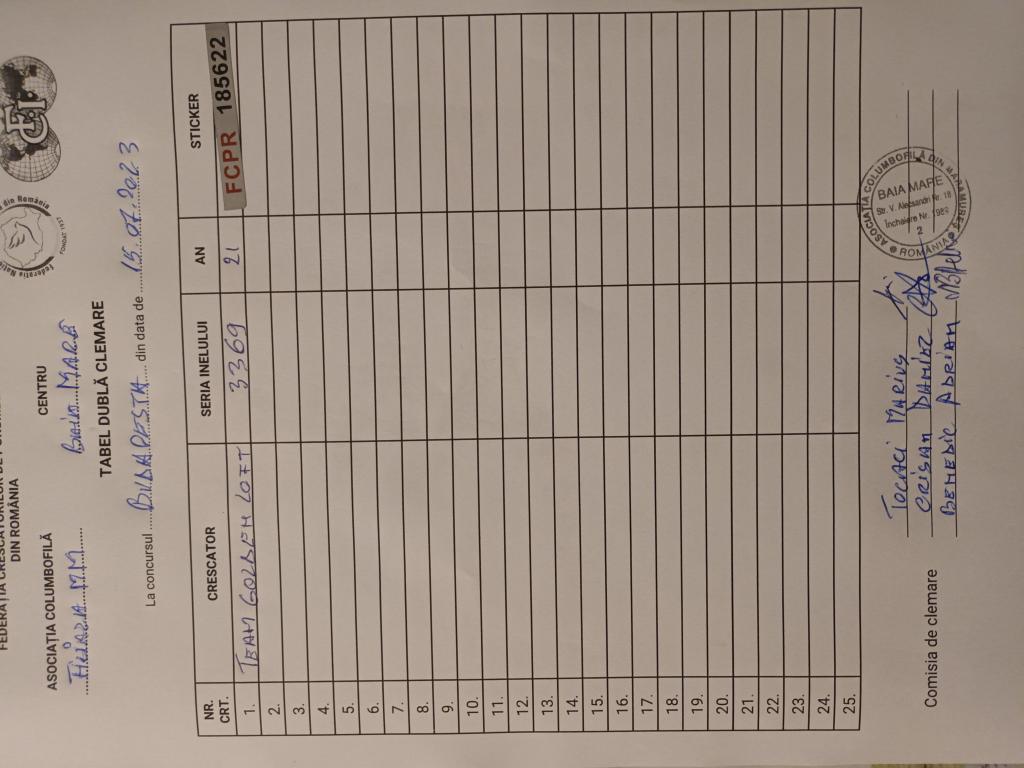 DIN ROMÂNIA
ASOCIAȚIA COLUMBOFILĂ
CENTRU
MM
BAIA MARE
TABEL DUBLĂ CLEMARE
La concursul BUDAPESTA din data de 15.07.2023
NR. CRT. CRESCATOR SERIA INELULUI AN STICKER
1. TEAM GOLDEN LOFT 3369 21 FCPR 185622
2.
3.
4.
5.
6.
7.
8.
9.
10.
11.
12.
13.
14.
15.
16.
17.
18.
19.
20.
21.
22.
23.
24.
25.
Comisia de clemare
TOCACI MARIUS
CRISAN DANIEL
BENEDIC ADRIAN
ASOCIAȚIA COLUMBOFILĂ DIN MARAMUREȘ
BAIA MARE
Str. V. Alecsandri Nr. 18
2
ROMÂNIA